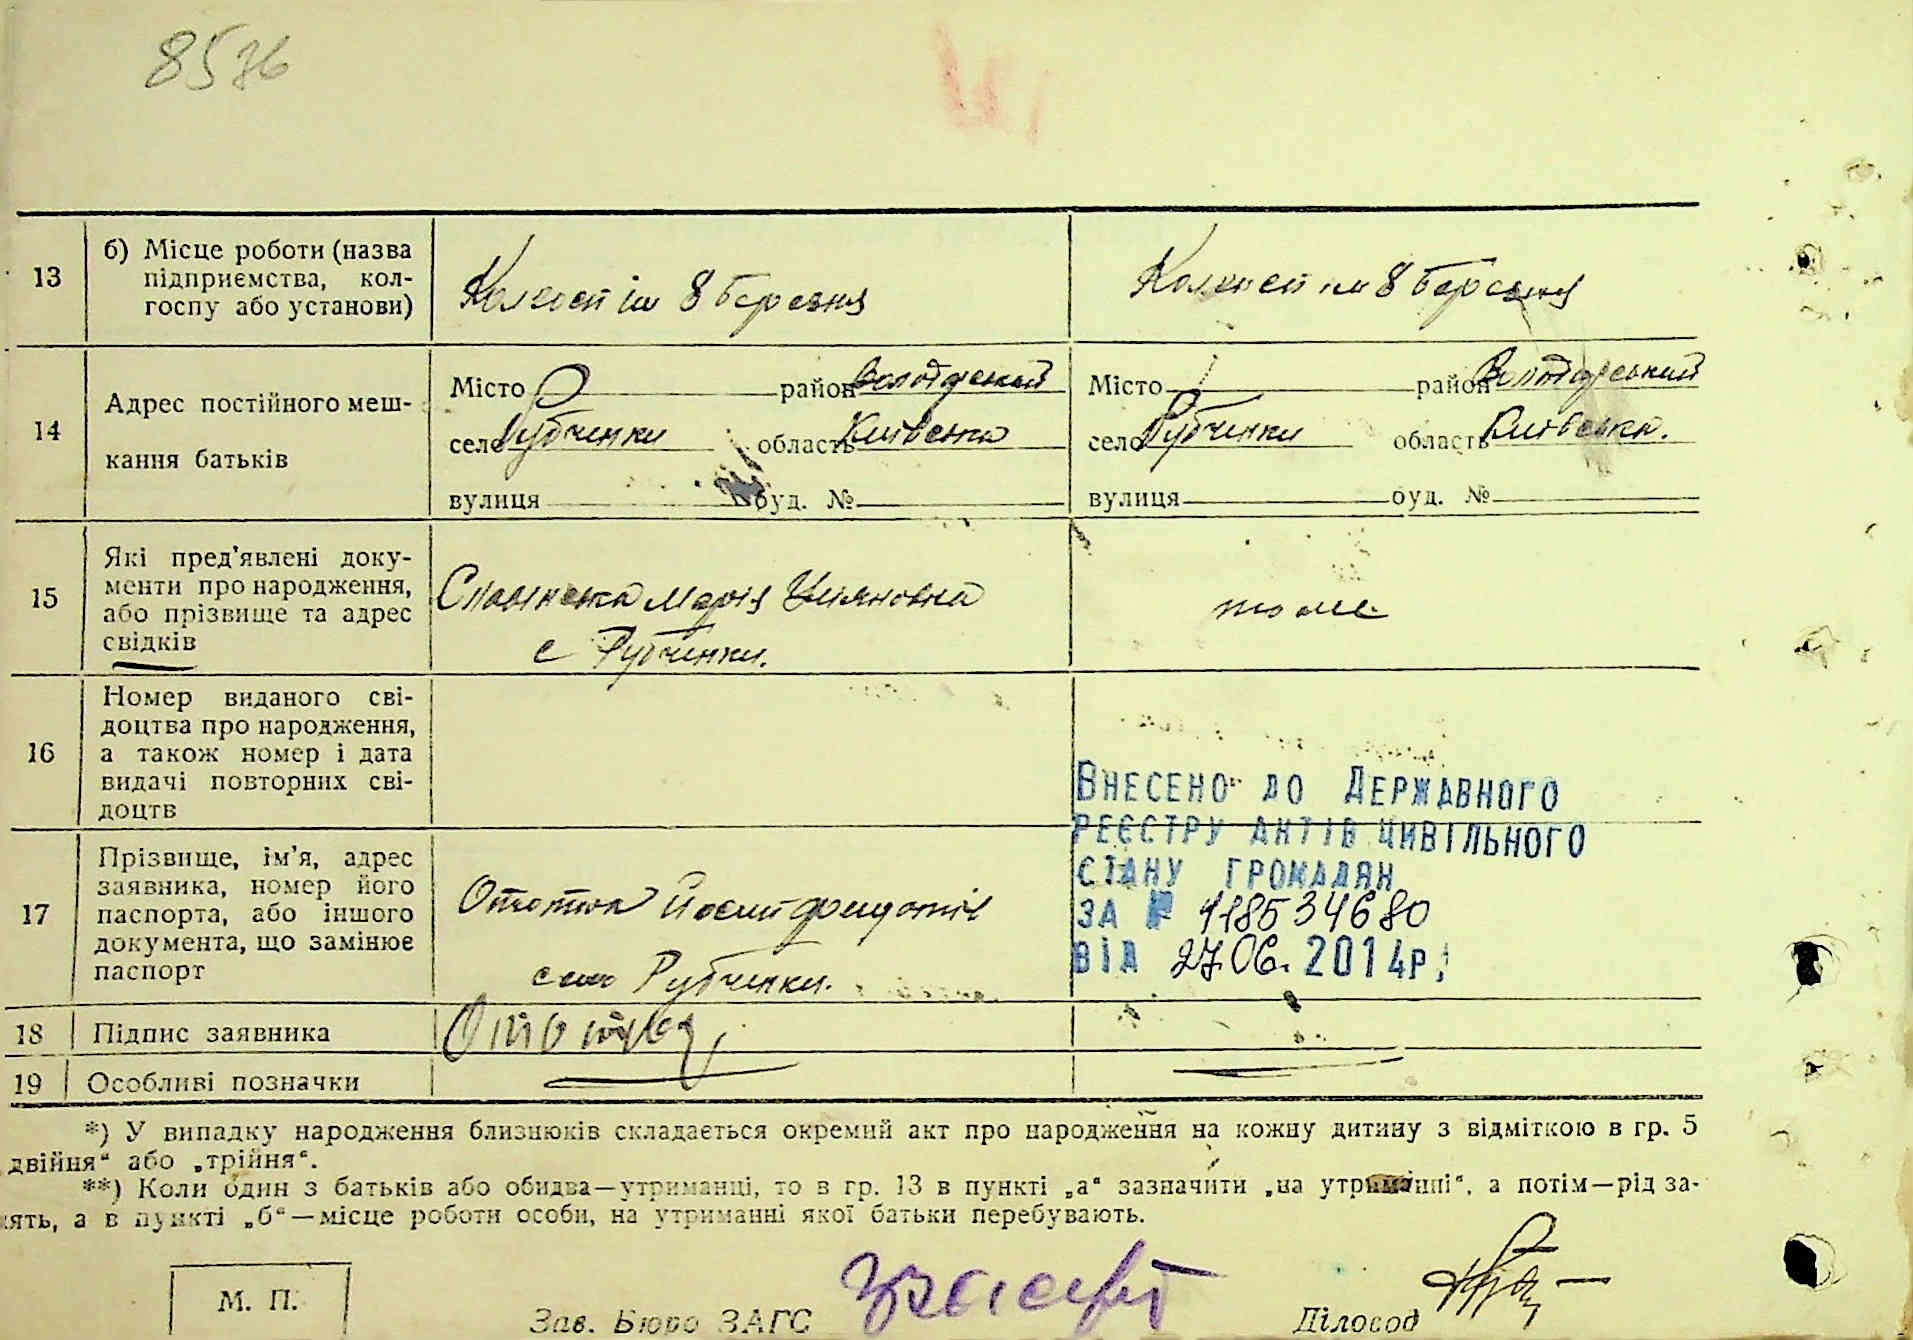 8576
13
б) Місце роботи (назва
підприємства, кол-
госпу або установи)
Колгосп ім 8 березня
Колгосп ім 8 березня
14
Адрес постійного меш-
кання батьків
Місто район Володарський
село Рубченки область Київська
вулиця буд. №
Місто район Володарський
село Рубченки область Київська.
вулиця буд. №
15
Які пред'явлені доку-
менти про народження,
або прізвище та адрес
свідків
Славінська Марія
с Рубченки.
тоже
16
Номер виданого сві-
доцтва про народження,
а також номер і дата
видачі повторних сві-
доцтв
Внесено до Державного
реєстру актів цивільного
стану громадян
за № 118534680
від 27.06. 2014р.
17
Прізвище, ім'я, адрес
заявника, номер його
паспорта, або іншого
документа, що замінює
паспорт
Йосип
село Рубченки.
18
Підпис заявника
19
Особливі позначки
*) У випадку народження близнюків складається окремий акт про народження на кожну дитину з відміткою в гр. 5
двійня“ або „трійня“.
**) Коли один з батьків або обидва—утриманці, то в гр. 13 в пункті „а“ зазначити „на утриманні“, а потім—рід за-
нять, а в пункті „б“—місце роботи особи, на утриманні якої батьки перебувають.
М. П.
Зав. Бюро ЗАГС
Діловод